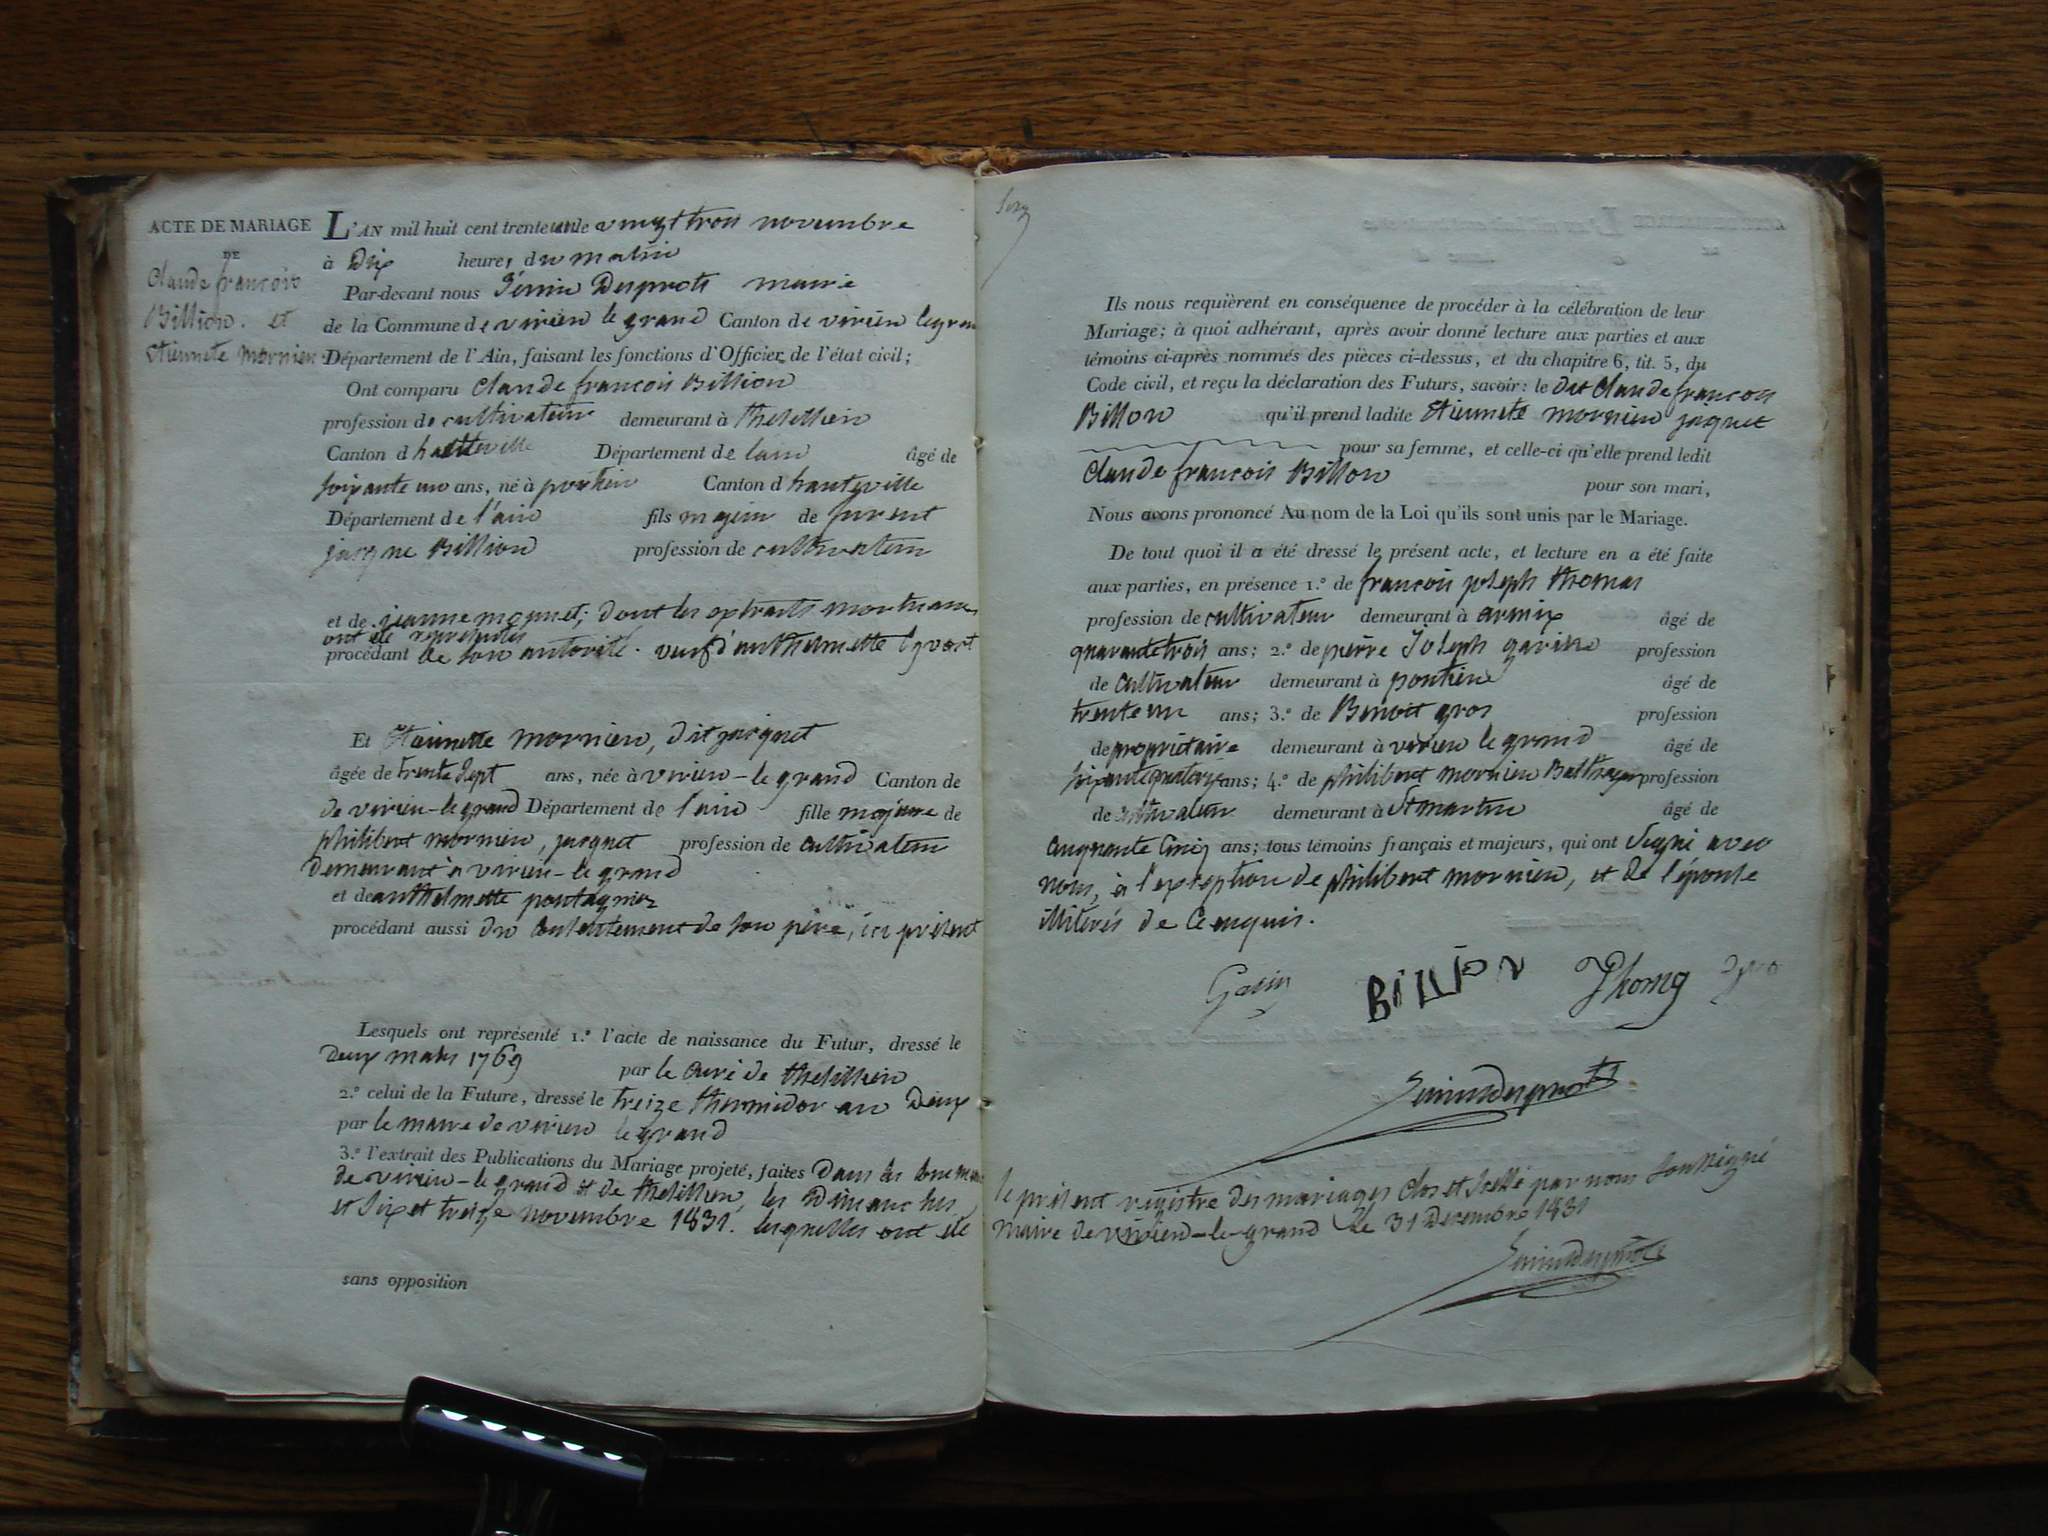 ACTE DE MARIAGE
DE
Claude françois
Billion. et
Etiennete mornieu
L'AN mil huit cent trente un le vingt trois novembre
à Dix heures du matin
Par-devant nous Desprots maire
de la Commune de virieu le grand Canton de virieu le gran
Département de l'Ain, faisant les fonctions d'Officier de l'état civil;
Ont comparu Claude françois Billion
profession de cultivateur demeurant à thesillieu
Canton d'hauteville Département de lain âgé de
soixante un ans, né à Canton d'hauteville
Département de l'ain fils majeur de furent
jacque Billion profession de cultivateur
et de jeanne monnet; dont les extraits mortuaires
ont été représentés
procédant de son autorité. veuf d'anthelmette
Et Etiennette mornieu, dit jacquet
âgée de trente sept ans, née à virieu-le grand Canton de
de virieu-le grand Département de l'ain fille majeure de
philibert mornieu, jacquet profession de cultivateur
demeurant à virieu-le grand
et de anthelmette pontagnier
procédant aussi du consentement de son père, ici présent
Lesquels ont représenté 1.º l'acte de naissance du Futur, dressé le
deux mars 1769 par le curé de thesillieu
2.º celui de la Future, dressé le treize thermidor an Deux
par le maire de virieu le grand
3.º l'extrait des Publications du Mariage projeté, faites dans les
de virieu-le grand et de thesillieu, les Dimanches
et six et treize novembre 1831. lesquelles ont été
sans opposition
Ils nous requièrent en conséquence de procéder à la célébration de leur
Mariage; à quoi adhérant, après avoir donné lecture aux parties et aux
témoins ci-après nommés des pièces ci-dessus, et du chapitre 6, tit. 5, du
Code civil, et reçu la déclaration des Futurs, savoir: le dit Claude françois
Billon qu'il prend ladite Etiennete mornieu jaquet
pour sa femme, et celle-ci qu'elle prend ledit
Claude françois Billon pour son mari,
Nous avons prononcé Au nom de la Loi qu'ils sont unis par le Mariage.
De tout quoi il a été dressé le présent acte, et lecture en a été faite
aux parties, en présence 1.º de françois joseph thomas
profession de cultivateur demeurant à armix âgé de
quarante trois ans; 2.º de pierre Joseph profession
de cultivateur demeurant à âgé de
trente un ans; 3.º de Benoit gros profession
de propriétaire demeurant à virieu le grand âgé de
soixante quatorze ans; 4.º de philibert mornieu profession
de cultivateur demeurant à St martin âgé de
cinquante cinq ans; tous témoins français et majeurs, qui ont signé avec
nous, à l'exception de philibert mornieu, et de l'épouse
illiterés de ce enquis.
BILLION
le présent registre des mariages clos et scellé par nous soussigné
maire de virieu-le-grand le 31 Decembre 1831